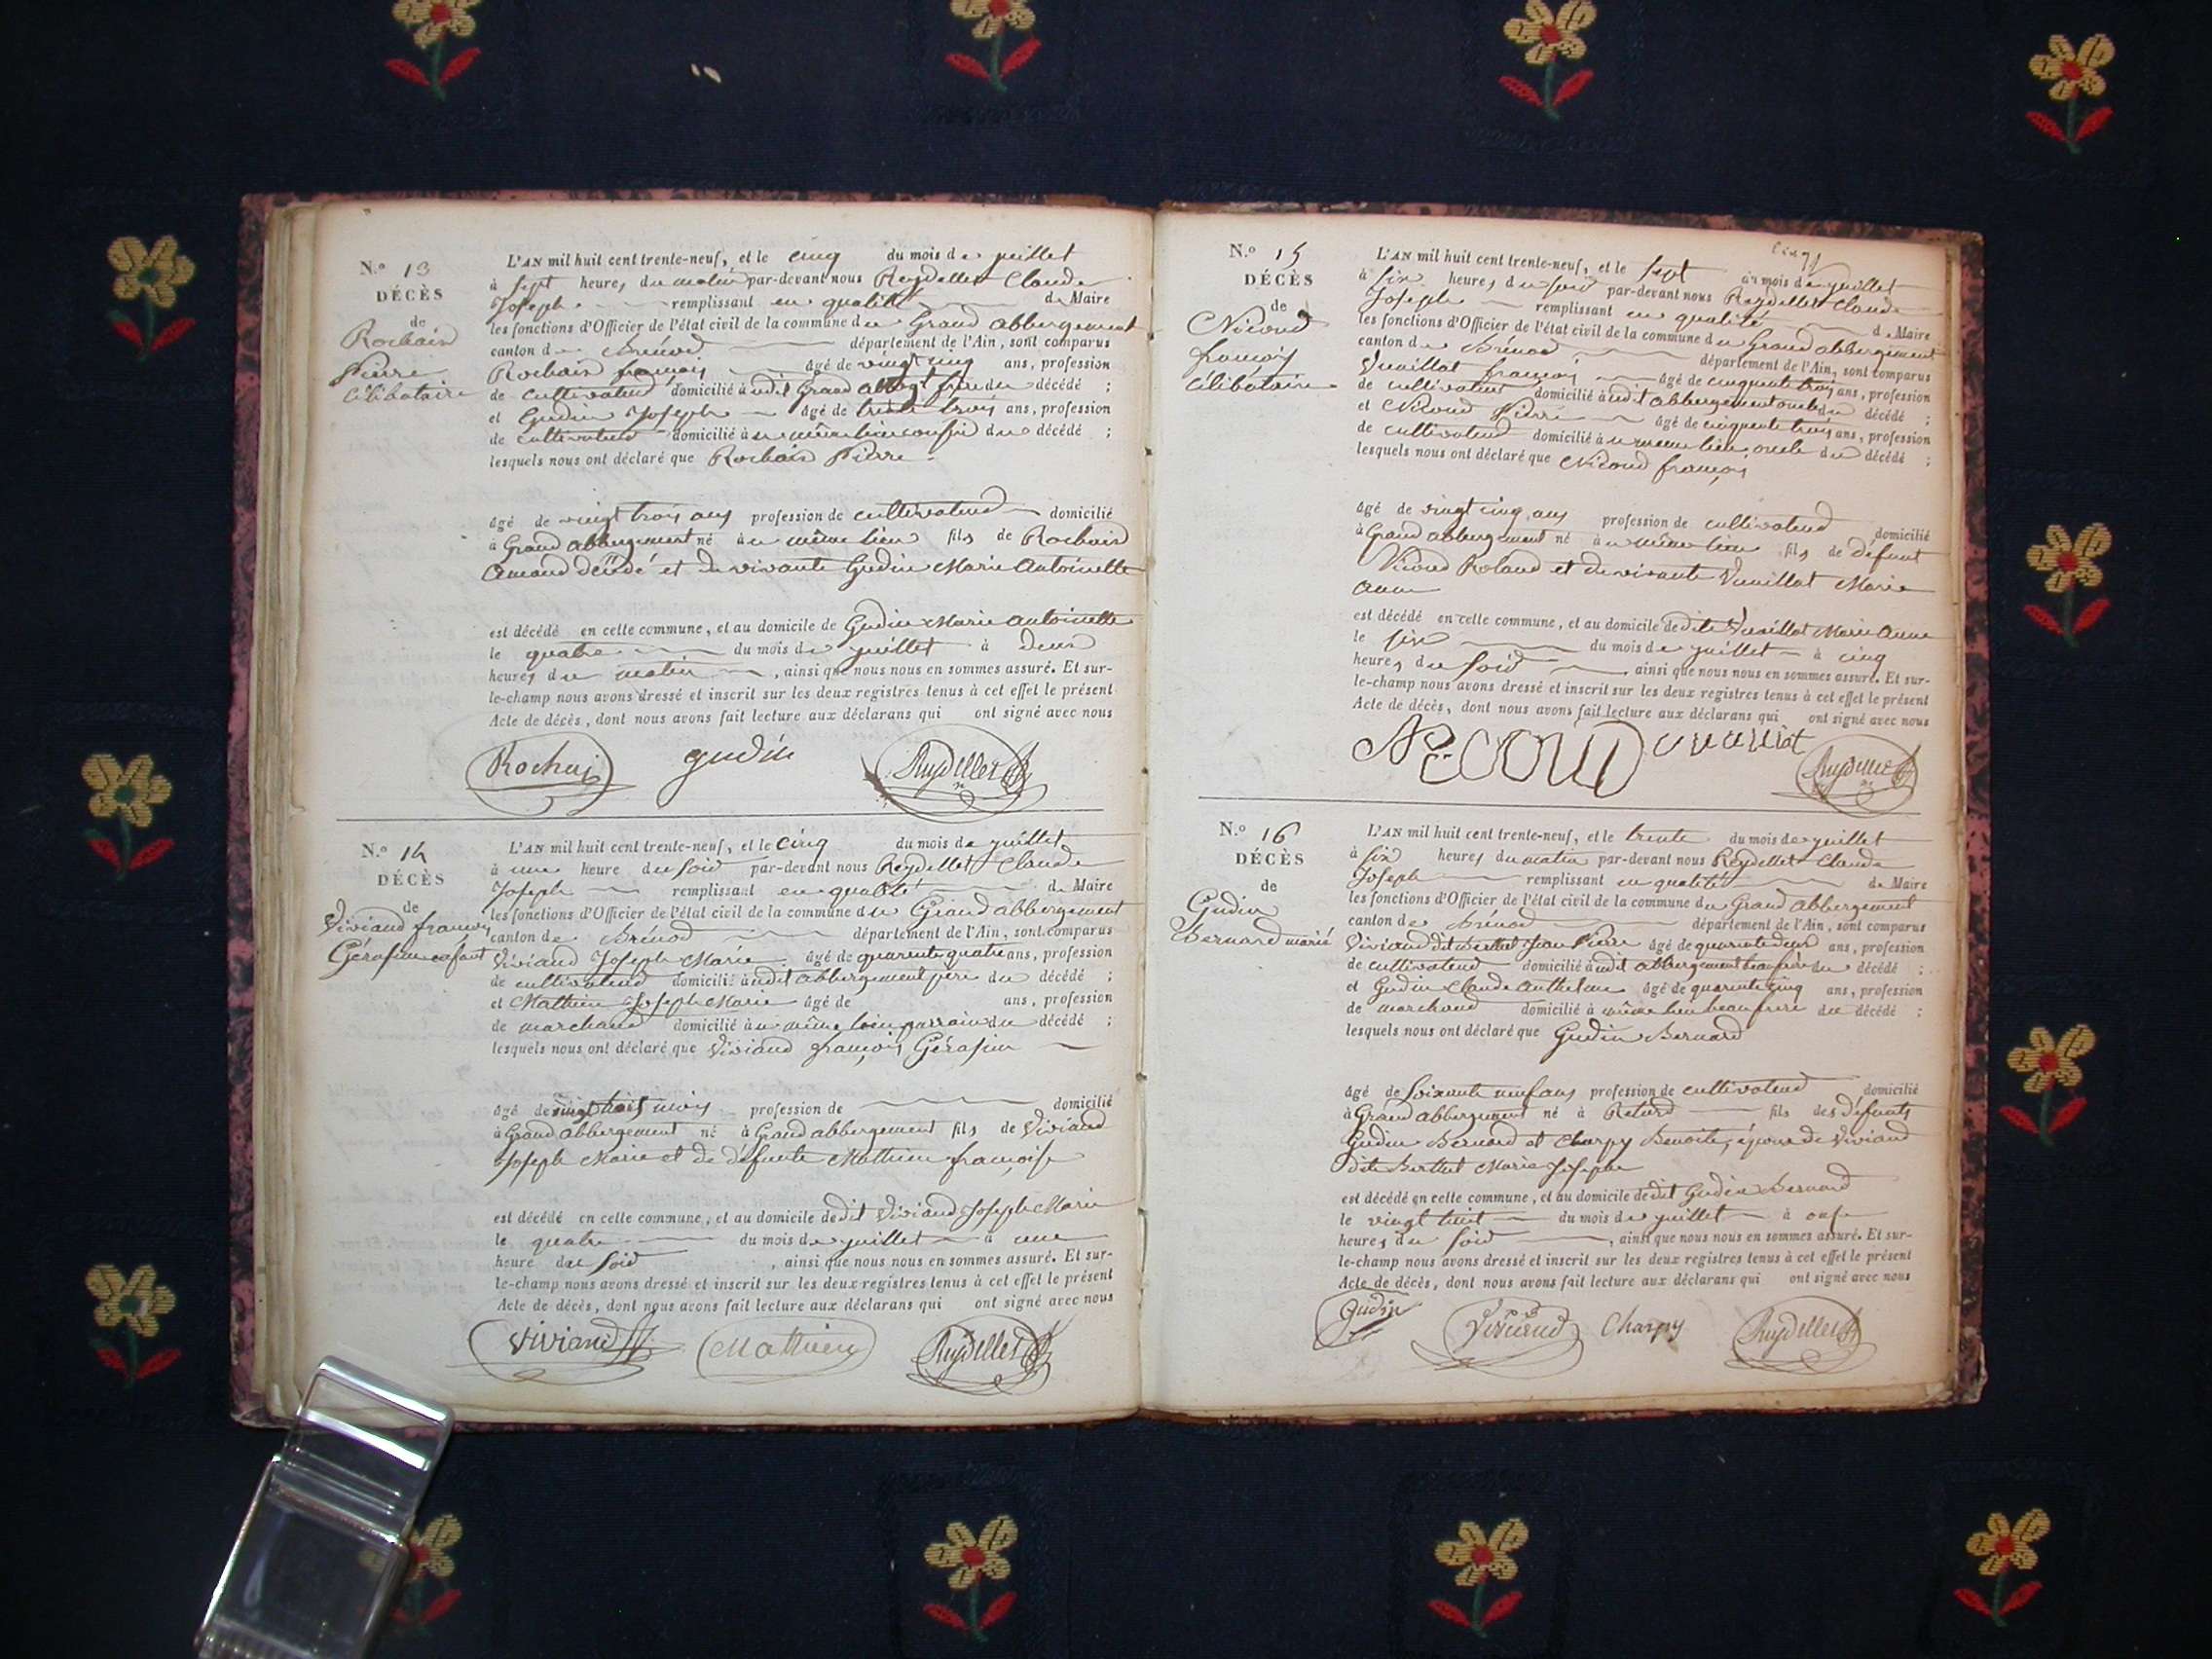 N.º 13
DÉCÈS
de
Rochaix
Pierre
célibataire
L'AN mil huit cent trente-neuf, et le cinq du mois de juillet
à sept heures du matin par-devant nous Reydellet Claude
Joseph remplissant en qualité de Maire
les fonctions d'Officier de l'état civil de la commune du Grand abbergement
canton de Brénod département de l'Ain, sont comparus
Rochaix françois âgé de vingt cinq ans, profession
de cultivateur domicilié à udit Grand abbgt frère du décédé ;
et Gudin Joseph âgé de trente trois ans, profession
de cultivateur domicilié à u même lieu cousin du décédé ;
lesquels nous ont déclaré que Rochaix Pierre
âgé de vingt trois ans profession de cultivateur domicilié
à Grand abbergement né à u même lieu fils de Rochaix
Amand décédé et de vivante Gudin Marie Antoinette
est décédé en cette commune, et au domicile de Gudin Marie Antoinette
le quatre du mois de juillet à deux
heures du matin, ainsi que nous nous en sommes assuré. Et sur-
le-champ nous avons dressé et inscrit sur les deux registres tenus à cet effet le présent
Acte de décès, dont nous avons fait lecture aux déclarans qui ont signé avec nous
Rochaix gudin Reydellet
N.º 14
DÉCÈS
de
Viviand françois
Gérasime enfant
L'AN mil huit cent trente-neuf, et le cinq du mois de juillet
à une heure du soir par-devant nous Reydellet Claude
Joseph remplissant en qualité de Maire
les fonctions d'Officier de l'état civil de la commune du Grand abbergement
canton de Brénod département de l'Ain, sont comparus
Viviand Joseph Marie âgé de quarente quatre ans, profession
de cultivateur domicilié à udit abbergement père du décédé ;
et Mathieu Joseph Marie âgé de ans, profession
de marchand domicilié à u même lieu parrain du décédé ;
lesquels nous ont déclaré que Viviand françois Gérasime
âgé de vingt trois mois profession de domicilié
à Grand abbergement né à Grand abbergement fils de Viviand
Joseph Marie et de défunte Mathieu françoise
est décédé en cette commune, et au domicile de dit Viviand Joseph Marie
le quatre du mois de juillet à une
heure du soir, ainsi que nous nous en sommes assuré. Et sur-
le-champ nous avons dressé et inscrit sur les deux registres tenus à cet effet le présent
Acte de décès, dont nous avons fait lecture aux déclarans qui ont signé avec nous
Viviand Mathieu Reydellet
N.º 15
DÉCÈS
de
Nicoud
françois
célibataire
L'AN mil huit cent trente-neuf, et le sept du mois de juillet
à six heures du soir par-devant nous Reydellet Claude
Joseph remplissant en qualité de Maire
les fonctions d'Officier de l'état civil de la commune du Grand abbergement
canton de Brénod département de l'Ain, sont comparus
Vuaillat françois âgé de cinquante trois ans, profession
de cultivateur domicilié à udit abbergement oncle du décédé ;
et Nicoud Pierre âgé de cinquante trois ans, profession
de cultivateur domicilié à u même lieu, oncle du décédé ;
lesquels nous ont déclaré que Nicoud françois
âgé de vingt cinq ans profession de cultivateur domicilié
à Grand abbergement né à u même lieu fils de défunt
Nicoud Roland et de vivante Vuaillat Marie
Anne
est décédé en cette commune, et au domicile de dite Vuaillat Marie Anne
le six du mois de juillet à cinq
heures du soir, ainsi que nous nous en sommes assuré. Et sur-
le-champ nous avons dressé et inscrit sur les deux registres tenus à cet effet le présent
Acte de décès, dont nous avons fait lecture aux déclarans qui ont signé avec nous
Nicoud vuaillat Reydellet
N.º 16
DÉCÈS
de
Gudin
Bernard marié
L'AN mil huit cent trente-neuf, et le trente du mois de juillet
à six heures du matin par-devant nous Reydellet Claude
Joseph remplissant en qualité de Maire
les fonctions d'Officier de l'état civil de la commune du Grand abbergement
canton de Brénod département de l'Ain, sont comparus
Viviand dit Berthet Jean Pierre âgé de quarente deux ans, profession
de cultivateur domicilié à udit abbergement beau frère du décédé ;
et Gudin Claude Anthelme âgé de quarente cinq ans, profession
de marchand domicilié à même lieu beau frère du décédé ;
lesquels nous ont déclaré que Gudin Bernard
âgé de soixante neuf ans profession de cultivateur domicilié
à Grand abbergement né à Retord fils des défunts
Gudin Bernard et Charpy Benoite, époux de Viviand
dite Berthet Marie Josephe
est décédé en cette commune, et au domicile de dit Gudin Bernard
le vingt huit du mois de juillet à onze
heures du soir, ainsi que nous nous en sommes assuré. Et sur-
le-champ nous avons dressé et inscrit sur les deux registres tenus à cet effet le présent
Acte de décès, dont nous avons fait lecture aux déclarans qui ont signé avec nous
Gudin Viviand Charpy Reydellet